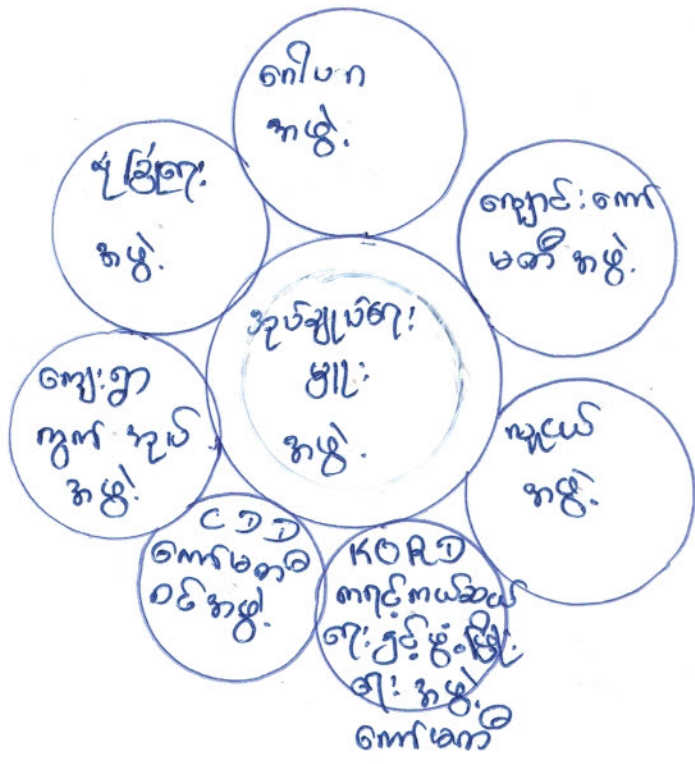 ဂေါပက
အဖွဲ့
ကျောင်းကော်
မတီ အဖွဲ့
လူငယ်
အဖွဲ့
KORD
ကရင့်ကယ်ဆယ်
ရေးနှင့်ဖွံ့ဖြိုး
ရေး အဖွဲ့
ကော်မတီ
CDD
ကော်မတီ
ဝင်အဖွဲ့
ကျေးရွာ
ကွက် အုပ်
အဖွဲ့
လုံခြုံရေး
အဖွဲ့
အုပ်ချုပ်ရေး
မှူး
အဖွဲ့